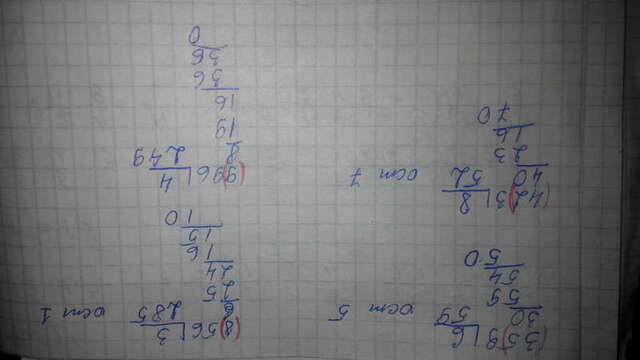 (35)9 6
30 59 ост 5
59
54
50
(8)56 3
6 285 ост 1
25
24
16
15
10
(42)3 8
40 52 ост 7
23
16
70
(9)96 4
8 249
19
16
36
36
0